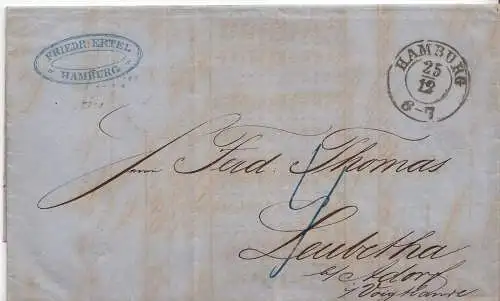 FRIEDR. ERTEL
HAMBURG
HAMBURG
25
12
6-7
Herrn Ferd. Thomas
Leubetha
b/ Adorf
i/ Voigtlande
4